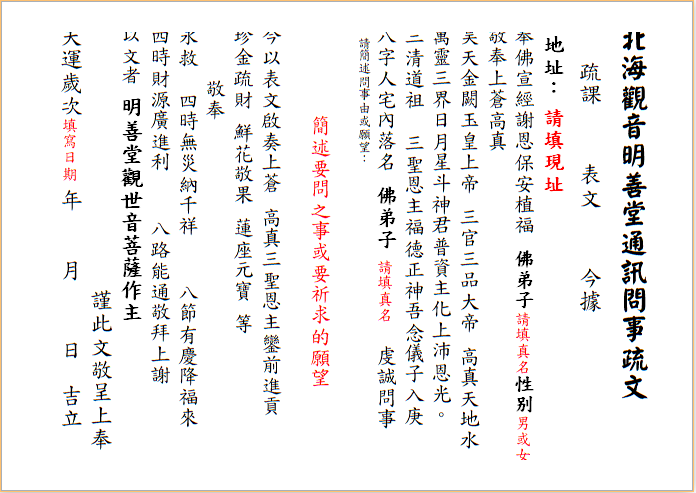 北海觀音明善堂通訊問事疏文
疏課 表文 今據
地址： 請填現址
奉佛宣經謝恩保安植福 佛弟子請填真名性別男或女
敬奉上蒼高真
昊天金闕玉皇上帝 三官三品大帝 高真天地水
萬靈三界日月星斗神君普資主化上沛恩光。
三清道祖 三聖恩主福德正神吾念儀子入庚
八字人宅內落名 佛弟子 請填真名 虔誠問事
請簡述問事由或願望：
簡述要問之事或要祈求的願望
今以表文啟奏上蒼 高真三聖恩主鑾前進貢
珍金疏財 鮮花敬果 蓮座元寶 等
敬奉
求救 四時無災納千祥 八節有慶降福來
四時財源廣進利 八路能通敬拜上謝
以文者 明善堂觀世音菩薩作主
謹此文敬呈上奉
天運歲次填寫日期年 月 日 吉立